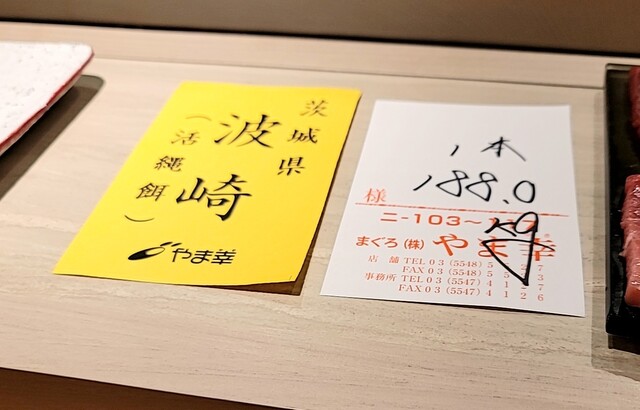 茨城県
波崎
（活縄餌）
やま幸
1本
188.0
様
二-103~
まぐろ(株)やま幸
店舗 TEL 03 (5548) 5
FAX 03 (5548) 5
事務所 TEL 03 (5547) 4 1 2 7
FAX 03 (5547) 4 1 2 6